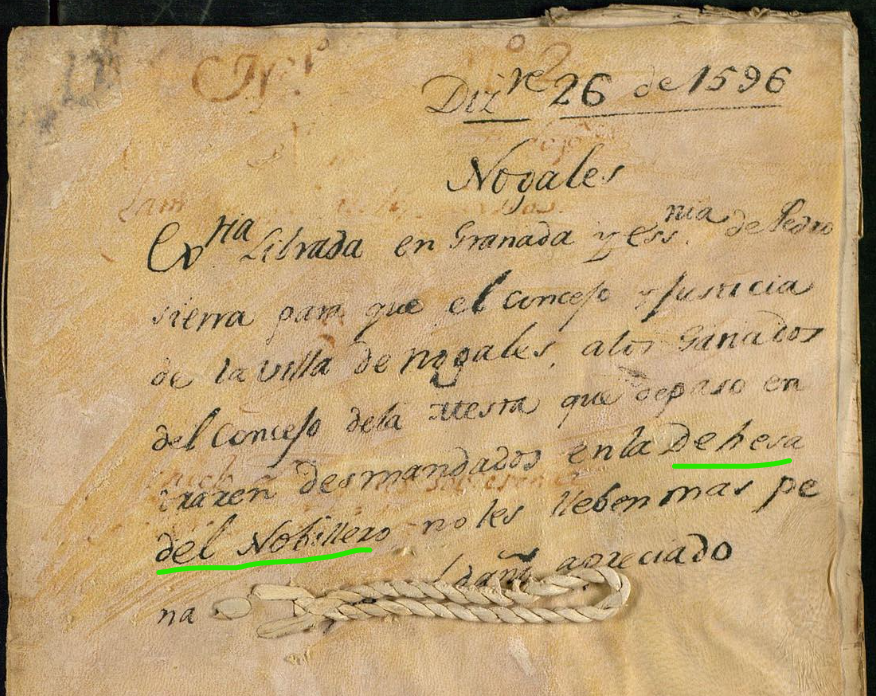 Dizre 26 de 1596
Nogales
Exria Librada en Granada y ess.nia de Pedro
sierra para que el concejo y Justicia
de la villa de nogales, alos Ganados
del Concejo dela Mesta que depaso en
traren desmandados en la Dehesa
del Nobillero no les lleben mas pe
na daño apreciado